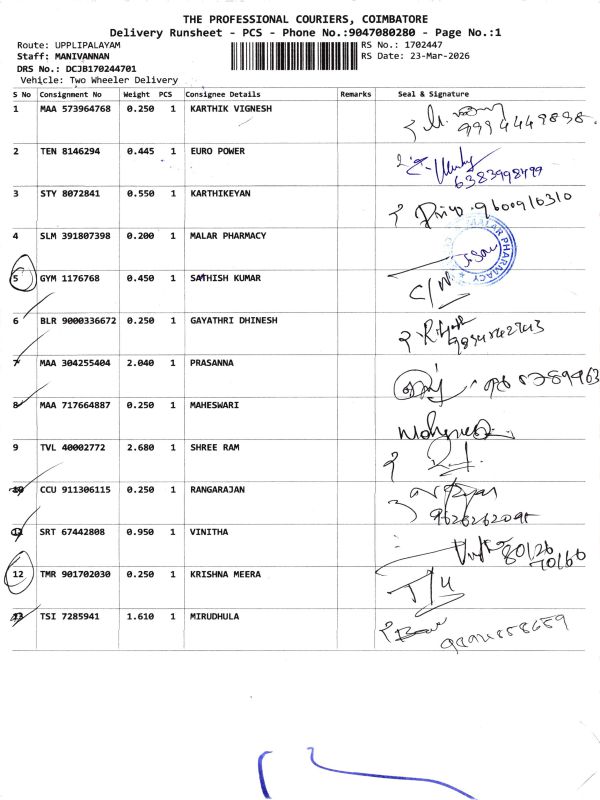 THE PROFESSIONAL COURIERS, COIMBATORE
Delivery Runsheet - PCS - Phone No.:9047080280 - Page No.:1
Route: UPPLIPALAYAM RS No.: 1702447
Staff: MANIVANNAN RS Date: 23-Mar-2026
DRS No.: DCJB170244701
Vehicle: Two Wheeler Delivery
S No Consignment No Weight PCS Consignee Details Remarks Seal & Signature
1 MAA 573964768 0.250 1 KARTHIK VIGNESH
2 TEN 8146294 0.445 1 EURO POWER
6383998499
3 STY 8072841 0.550 1 KARTHIKEYAN 9600910310
4 SLM 391807398 0.200 1 MALAR PHARMACY
MALAR PHARMACY
5 GYM 1176768 0.450 1 SATHISH KUMAR
C/N
6 BLR 9000336672 0.250 1 GAYATHRI DHINESH
7 MAA 304255404 2.040 1 PRASANNA
8 MAA 717664887 0.250 1 MAHESWARI
9 TVL 40002772 2.680 1 SHREE RAM
10 CCU 911306115 0.250 1 RANGARAJAN
9626262095
11 SRT 67442808 0.950 1 VINITHA 80126
70160
12 TMR 901702030 0.250 1 KRISHNA MEERA
13 TSI 7285941 1.610 1 MIRUDHULA